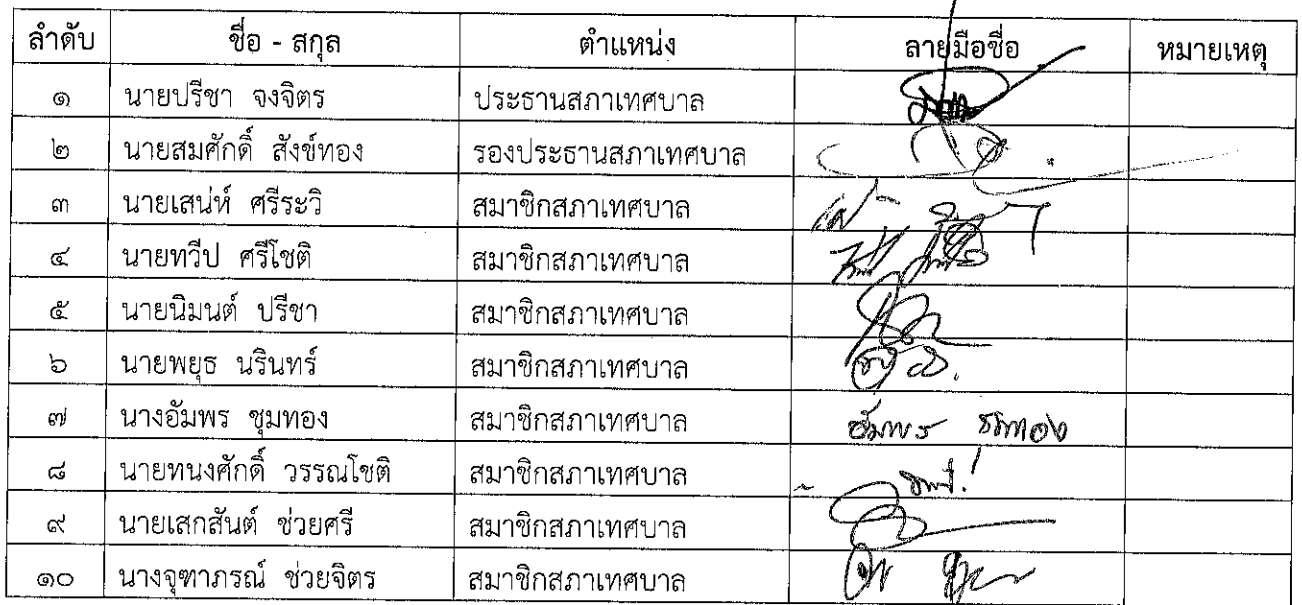 ลำดับ ชื่อ - สกุล ตำแหน่ง ลายมือชื่อ หมายเหตุ
๑ นายปรีชา จงจิตร ประธานสภาเทศบาล
๒ นายสมศักดิ์ สังข์ทอง รองประธานสภาเทศบาล
๓ นายเสน่ห์ ศรีระวิ สมาชิกสภาเทศบาล
๔ นายทวีป ศรีโชติ สมาชิกสภาเทศบาล
๕ นายนิมนต์ ปรีชา สมาชิกสภาเทศบาล
๖ นายพยุธ นรินทร์ สมาชิกสภาเทศบาล
๗ นางอัมพร ชุมทอง สมาชิกสภาเทศบาล อัมพร
๘ นายทนงศักดิ์ วรรณโชติ สมาชิกสภาเทศบาล
๙ นายเสกสันต์ ช่วยศรี สมาชิกสภาเทศบาล
๑๐ นางจุฑาภรณ์ ช่วยจิตร สมาชิกสภาเทศบาล